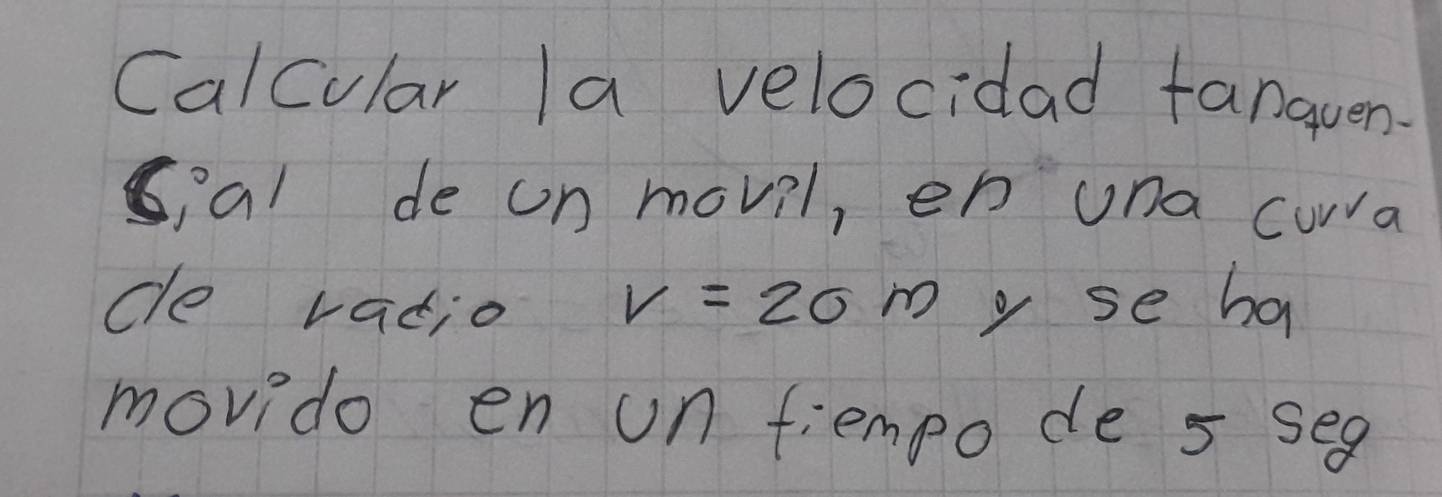 Calcular la velocidad tanquen-
sial de un movil, en una curva
de radio r = 20 m y se ha
movido en un tiempo de 5 seg